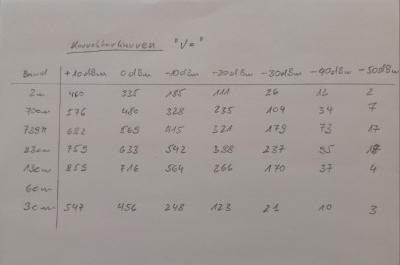 Korrekturkurven "V="
Band +10dBm 0dBm -10dBm -20dBm -30dBm -40dBm -50dBm
2m 460 335 185 111 26 12 2
70cm 576 480 328 235 104 34 7
682 569 415 321 179 73 17
23cm 759 633 542 388 237 95
13cm 859 716 504 266 170 37 4
6cm
3cm 547 456 248 123 21 10 3